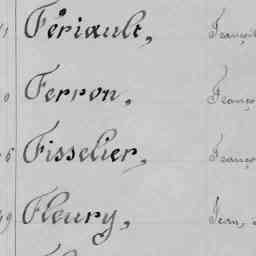 Fériault, Françoi
Ferron, Franço
6 Fisselier, Franço
9 Fleury, Jean,